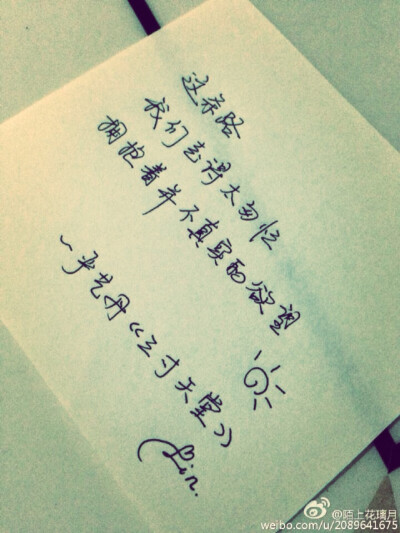 这条路
我们走得太匆忙
拥抱着并不真实的欲望
~严艺丹《三寸天堂》
Lin.
@陌上花璃月
weibo.com/u/2089641675